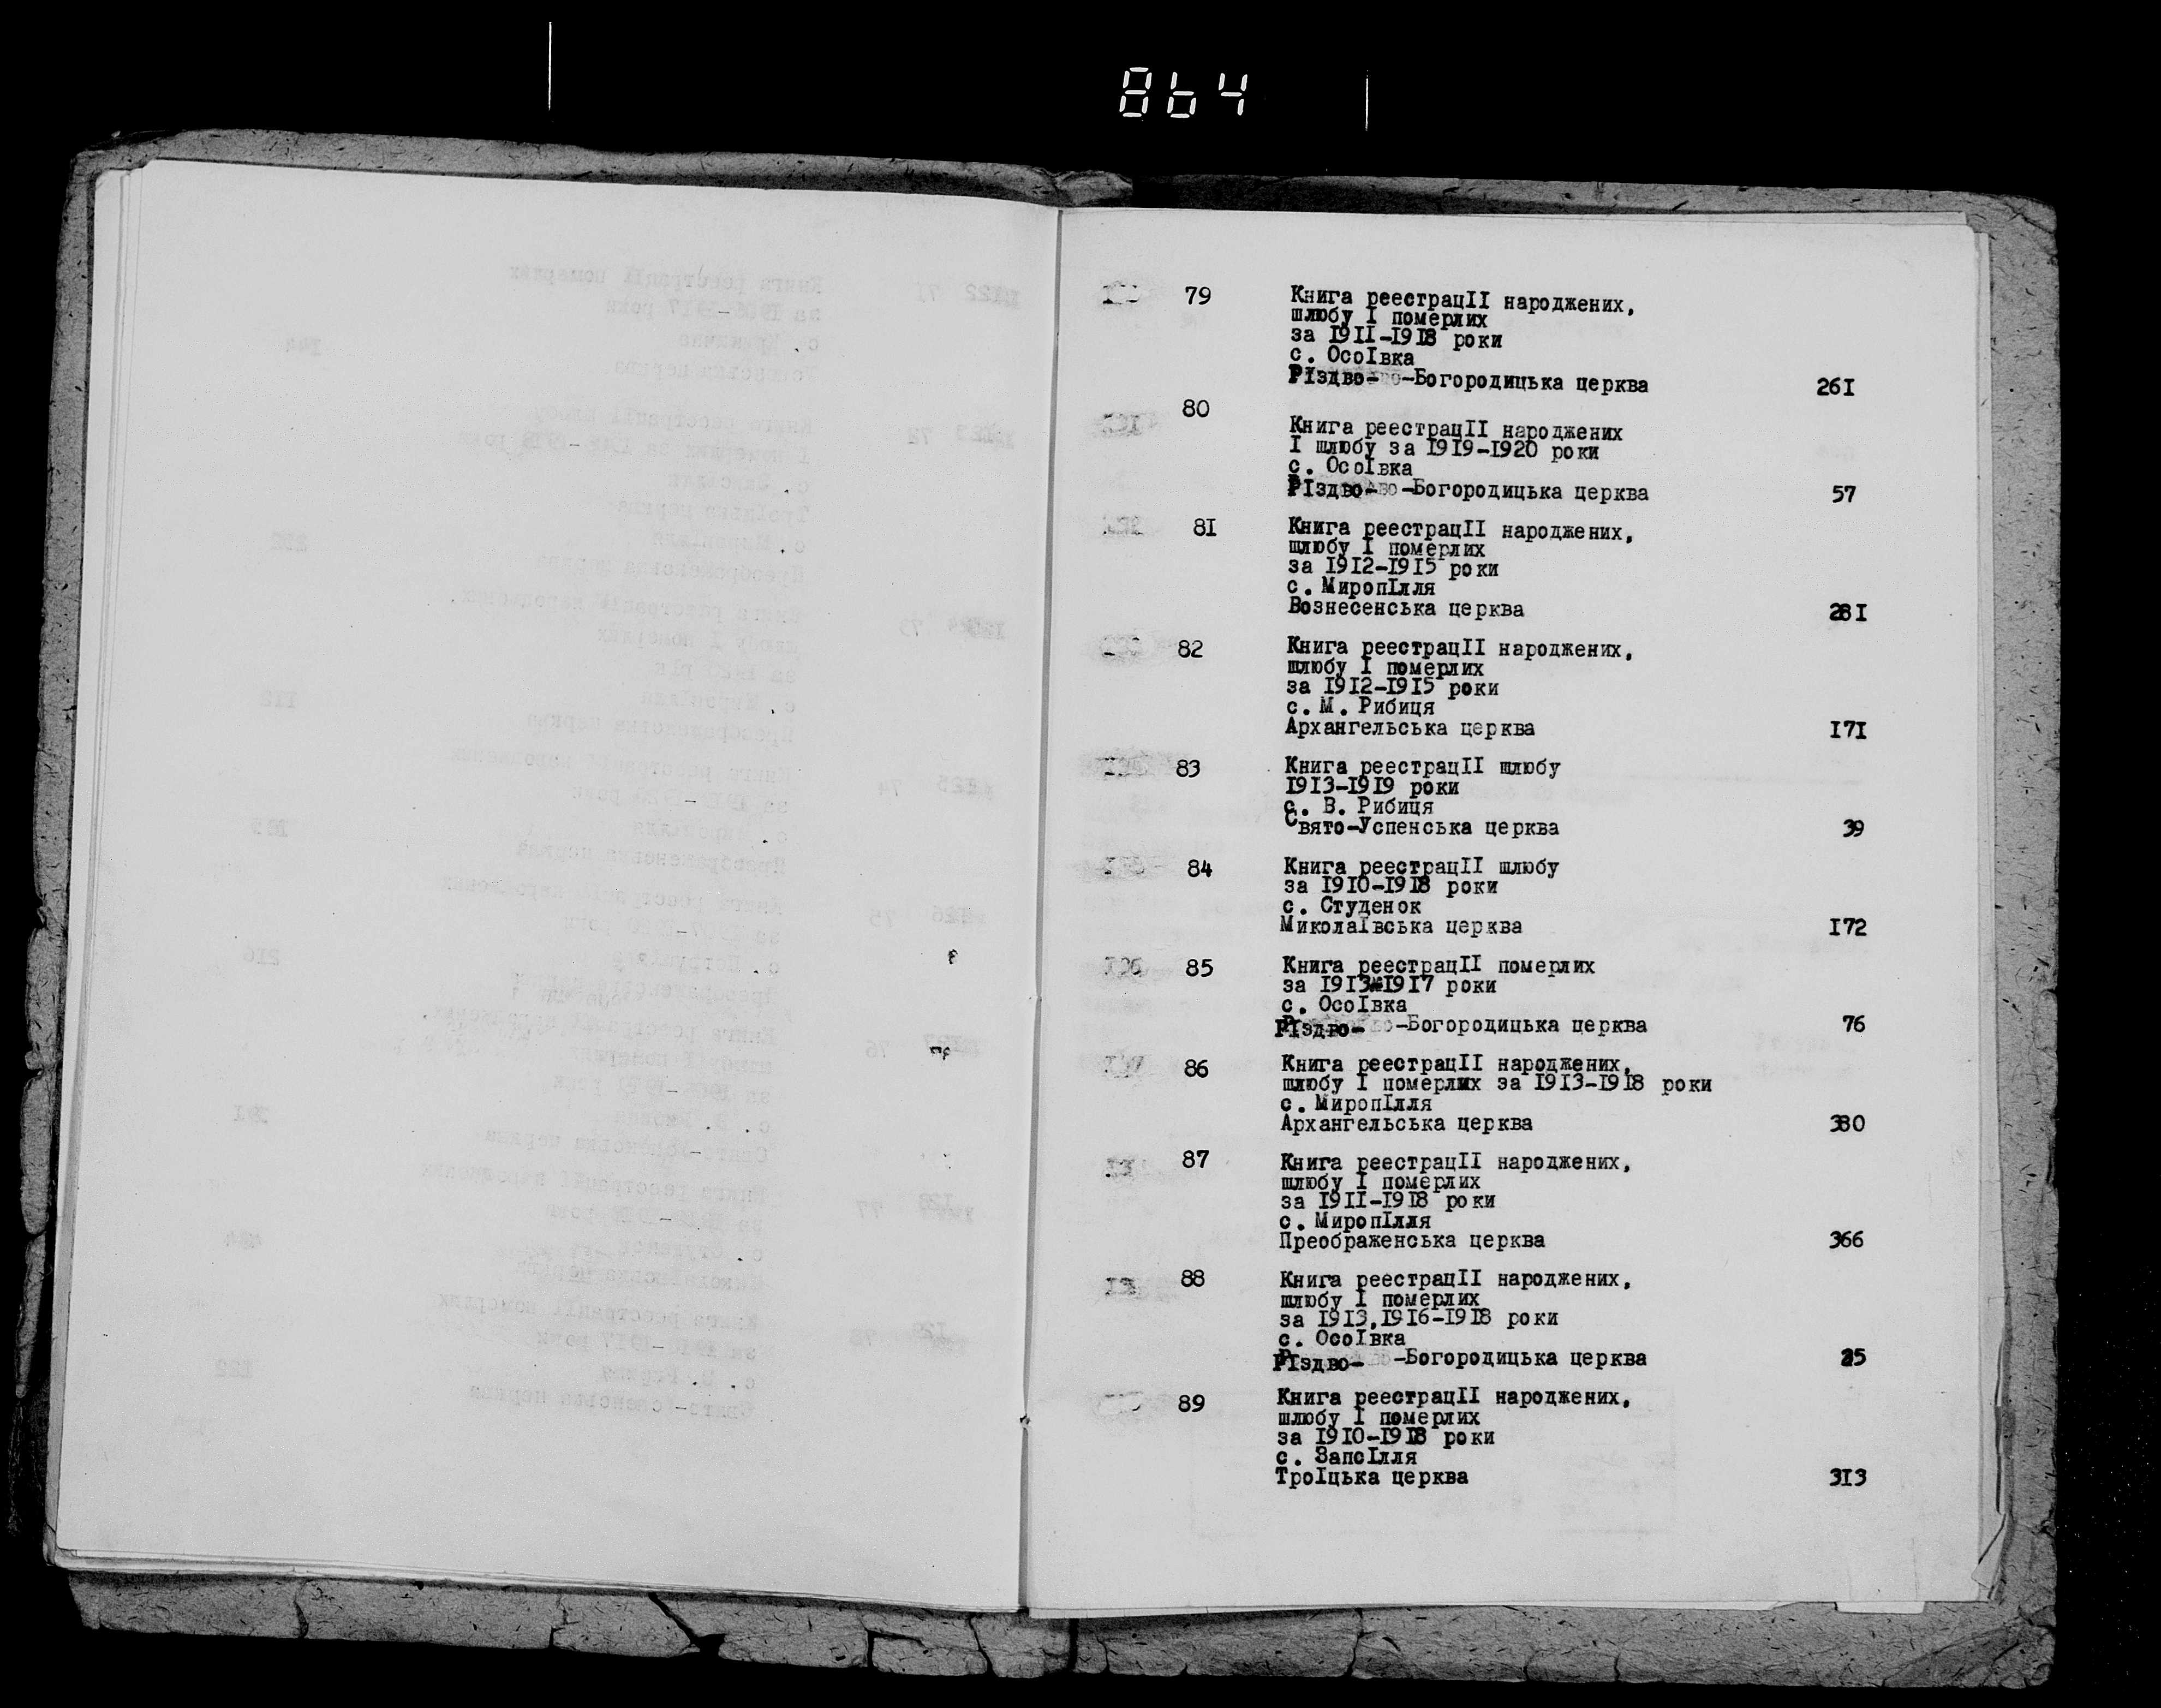 864
79 Книга реестрацII народжених,
шлюбу I померлих
за 1911-1918 роки
с. ОсоIвка
РIздво-Богородицька церква 261
80
Книга реестрацII народжених
I шлюбу за 1919-1920 роки
с. ОсоIвка
РIздво-Богородицька церква 57
81 Книга реестрацII народжених,
шлюбу I померлих
за 1912-1915 роки
с. МиропIлля
Вознесенська церква 281
82 Книга реестрацII народжених,
шлюбу I померлих
за 1912-1915 роки
с. М. Рибиця
Архангельська церква 171
83 Книга реестрацII шлюбу
1913-1919 роки
с. В. Рибиця
Свято-Успенська церква 39
84 Книга реестрацII шлюбу
за 1910-1918 роки
с. Студенок
МиколаIвська церква 172
85 Книга реестрацII померлих
за 1913-1917 роки
с. ОсоIвка
РIздво-Богородицька церква 76
86 Книга реестрацII народжених,
шлюбу I померлих за 1913-1918 роки
с. МиропIлля
Архангельська церква 380
87 Книга реестрацII народжених,
шлюбу I померлих
за 1911-1918 роки
с. МиропIлля
Преображенська церква 366
88 Книга реестрацII народжених,
шлюбу I померлих
за 1913,1916-1918 роки
с. ОсоIвка
РIздво-Богородицька церква
89 Книга реестрацII народжених,
шлюбу I померлих
за 1910-1918 роки
с. ЗапсIлля
ТроIцька церква 313